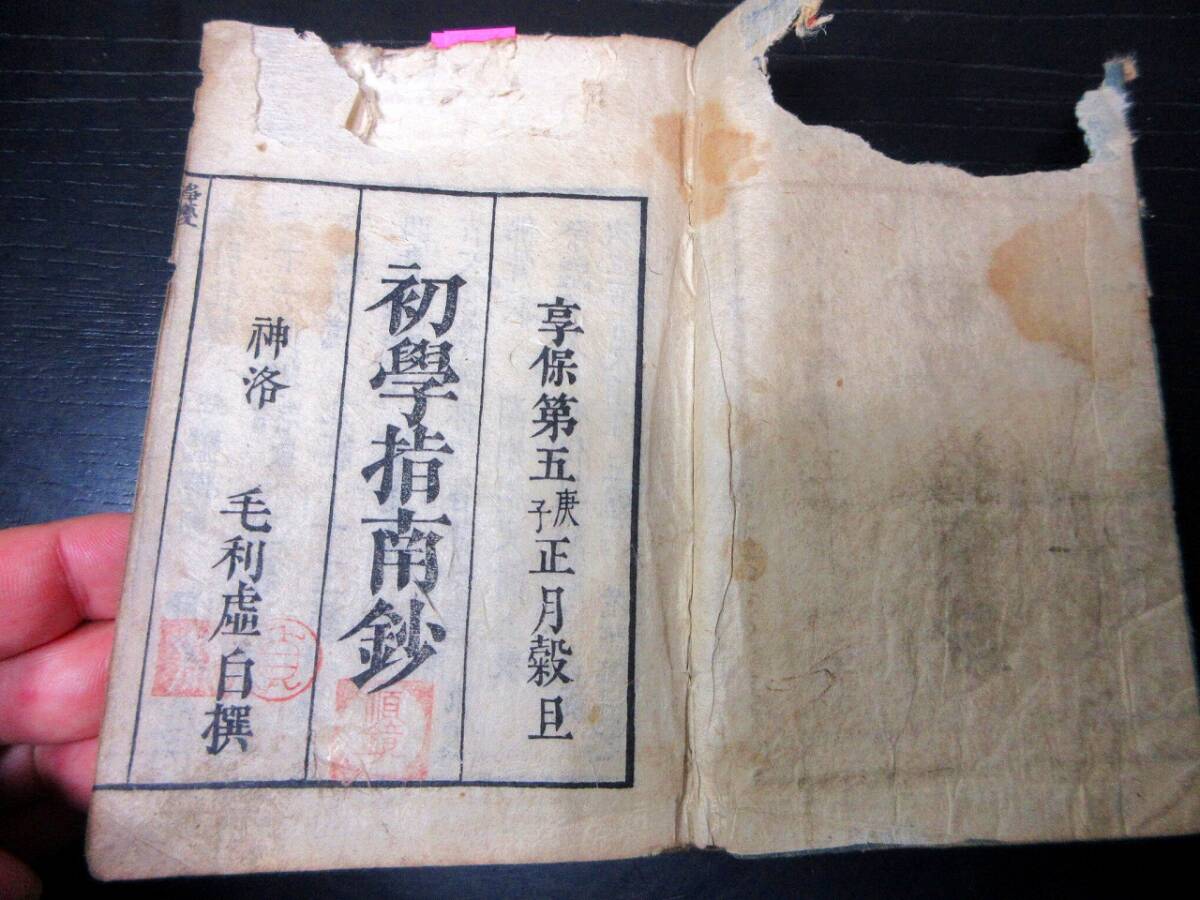 享保第五庚子正月穀旦
初學指南鈔
神洛 毛利虛白撰